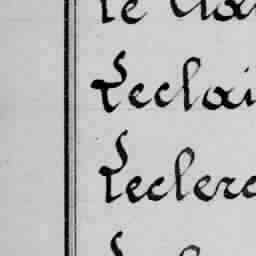 Le Cla
Leclai
Leclerc